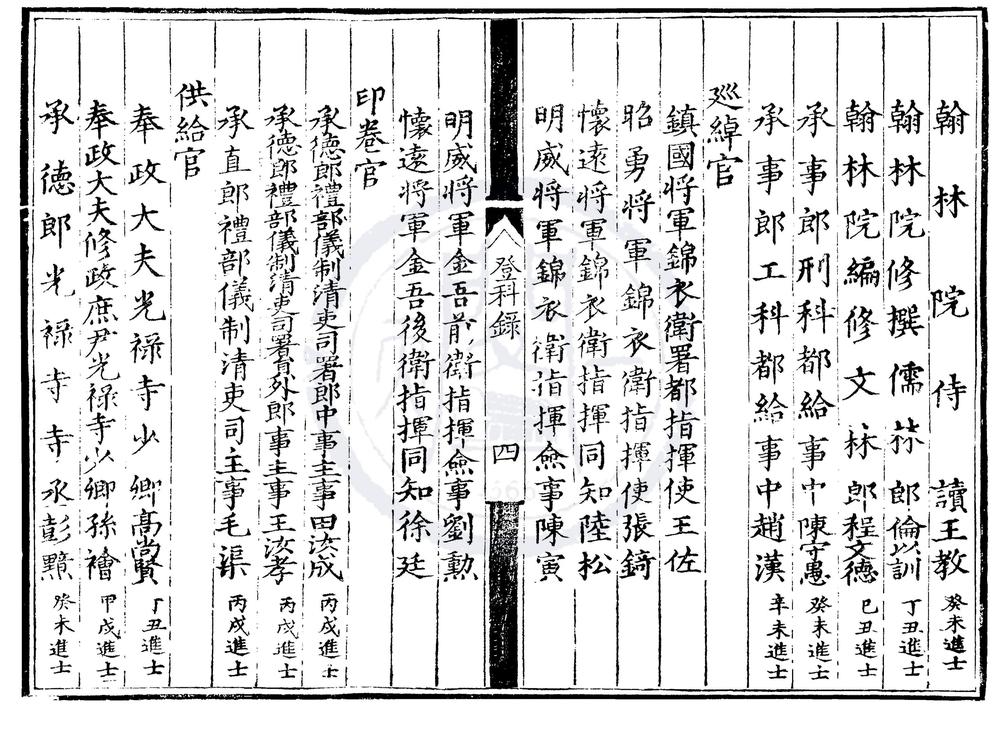 翰林院侍讀王教癸未進士
翰林院修撰儒林郎倫以訓丁丑進士
翰林院編修文林郎程文德己丑進士
承事郎刑科都給事中陳守愚癸未進士
承事郎工科都給事中趙漢辛未進士
廵綽官
鎮國將軍錦衣衛署都指揮使王佐
昭勇將軍錦衣衛指揮使張錡
懷遠將軍錦衣衛指揮同知陸松
明威將軍錦衣衛指揮僉事陳寅
登科錄
四
明威將軍金吾前衛指揮僉事劉勲
懷遠將軍金吾後衛指揮同知徐廷
印卷官
承德郎禮部儀制清吏司署郎中事主事田汝成丙戌進士
承德郎禮部儀制清吏司署員外郎事主事王汝孝丙戌進士
承直郎禮部儀制清吏司主事毛渠丙戌進士
供給官
奉政大夫光祿寺少卿高尚賢丁丑進士
奉政大夫修政庶尹光祿寺少卿孫襘甲戌進士
承德郎光祿寺寺丞彭黯癸未進士